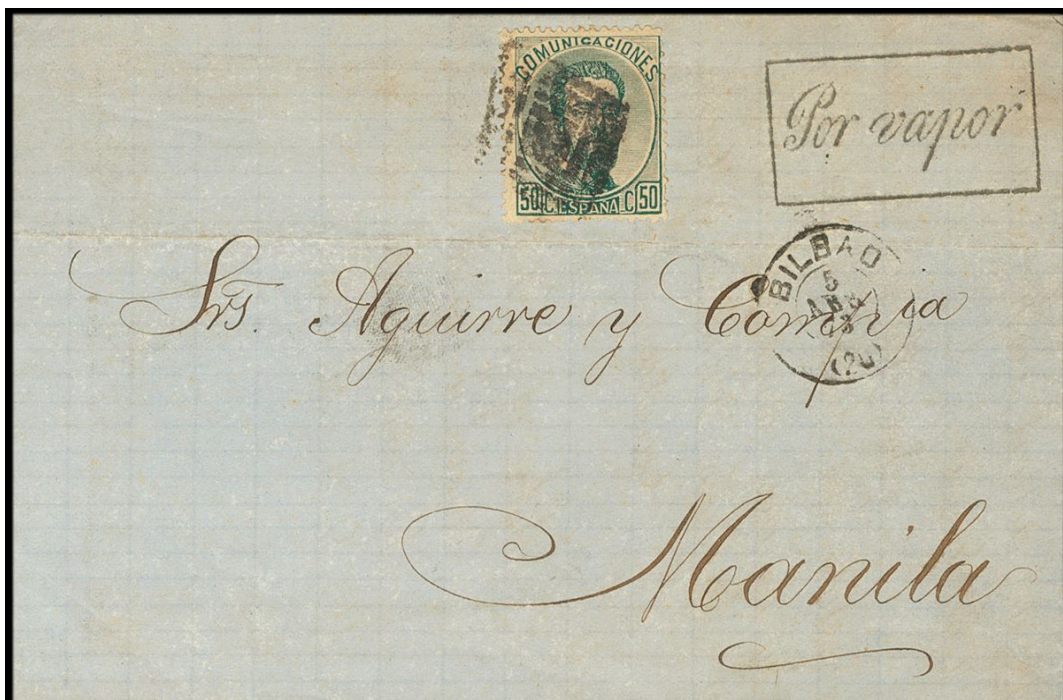 COMUNICACIONES
50 C. ESPAÑA C 50
Por vapor
BILBAO
5
ABR
(20)
Srs. Aguirre y Compñia
Manila